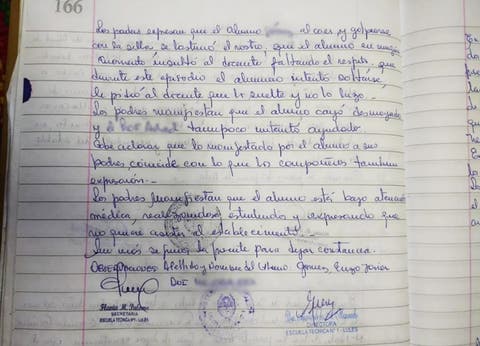 166
Los padres expresan que el alumno al caer y golpearse
con la silla, se lastimó el rostro, que el alumno en ningún
momento insultó al docente faltando el respeto. que
durante este episodio el alumno intentó soltarse,
le pidió al docente que lo suelte y no lo hizo.-
Los padres manifiestan que el alumno cayó desmayado
y tampoco intentó ayudarlo.
Cabe aclarar que lo manifestado por el alumno a sus
padres, coincide con lo que los compañeros también
expresaron.-
Los padres manifiestan que el alumno está bajo atención
médica, realizándose estudios y expresando que
no quiere asistir al establecimiento.-
Sin más se firma la presente para dejar constancia.
OBSERVACIONES Apellido y Nombre del alumno Gomez, Enzo Junior
DOE
SECRETARIA
ESCUELA TECNICA Nº 1 - LULES
DIRECTORA
ESCUELA TECNICA Nº 1 - LULES